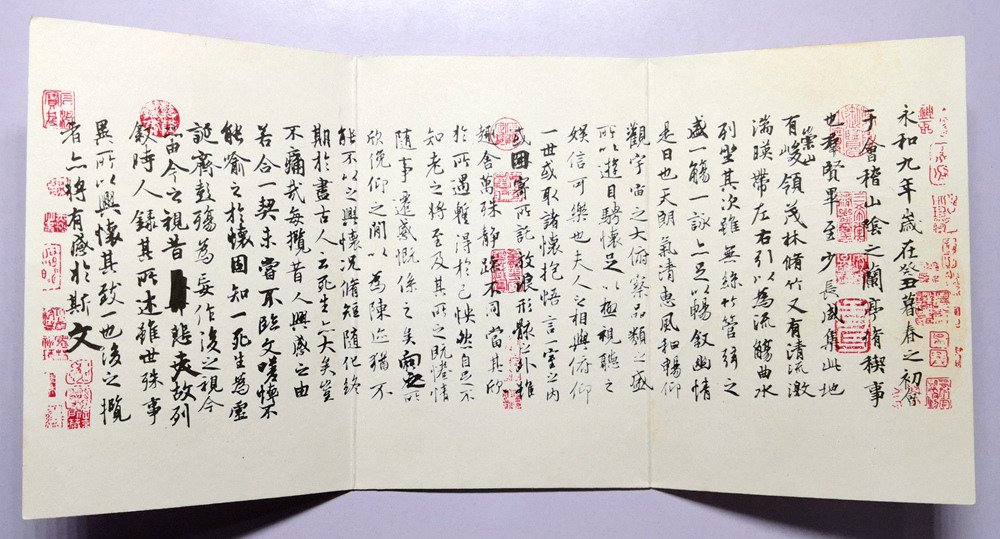 永和九年歲在癸丑暮春之初會
于會稽山陰之蘭亭脩稧事
也羣賢畢至少長咸集此地
有崇山峻領茂林脩竹又有清流激
湍暎帶左右引以為流觴曲水
列坐其次雖無絲竹管弦之
盛一觴一詠亦足以暢叙幽情
是日也天朗氣清惠風和暢仰
觀宇宙之大俯察品類之盛
所以遊目騁懷足以極視聽之
娛信可樂也夫人之相與俯仰
一世或取諸懷抱悟言一室之內
或因寄所託放浪形骸之外雖
趣舍萬殊靜躁不同當其欣
於所遇暫得於己怏然自足不
知老之將至及其所之既惓情
隨事遷感慨係之矣向之所
欣俛仰之閒以為陳迹猶不
能不以之興懷況脩短隨化終
期於盡古人云死生亦大矣豈
不痛哉每攬昔人興感之由
若合一契未嘗不臨文嗟悼不
能喻之於懷固知一死生為虛
誕齊彭殤為妄作後之視今
亦由今之視昔悲夫故列
敘時人錄其所述雖世殊事
異所以興懷其致一也後之攬
者亦將有感於斯文